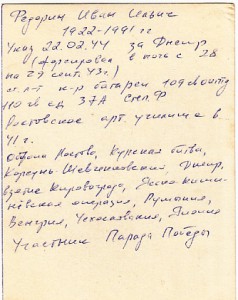 Федорин Иван Ильич
1922-1991 гг
Указ 22.02.44 за Днепр
(форсировал в ночь с 28
на 29 сент. 43 г.)
ст. л-т к-р батареи 109 гв
110 гв сд 37А Степ. Ф
Ростовское арт. училище в
41 г.
оборона Москвы, Курская битва,
Корсунь-Шевченковский, Днепр,
взятие Кировограда, Ясско-Киши-
невская операция, Румыния,
Венгрия, Чехословакия, Япония
Участник Парада Победы